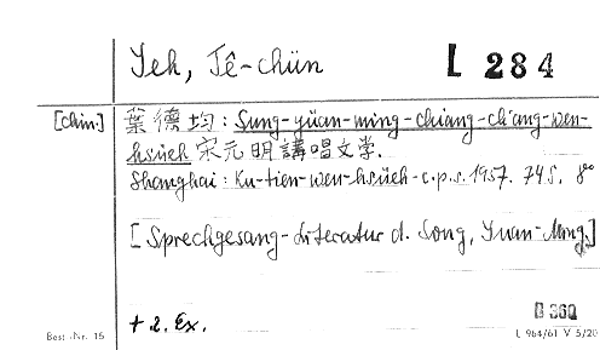 Yeh, Tê-chün L 284
[chin.] 葉德均: Sung-yüan-ming-chiang-ch'ang-wen-
hsüeh 宋元明講唱文学.
Shanghai: Ku-tien-wen-hsüeh-c.p.s. 1957. 74 S. 8°
[Sprechgesang-Literatur d. Song, Yuan-Ming.]
+ 2. Ex.
B 360
Best.-Nr. 15 L 964/61 V 5/20